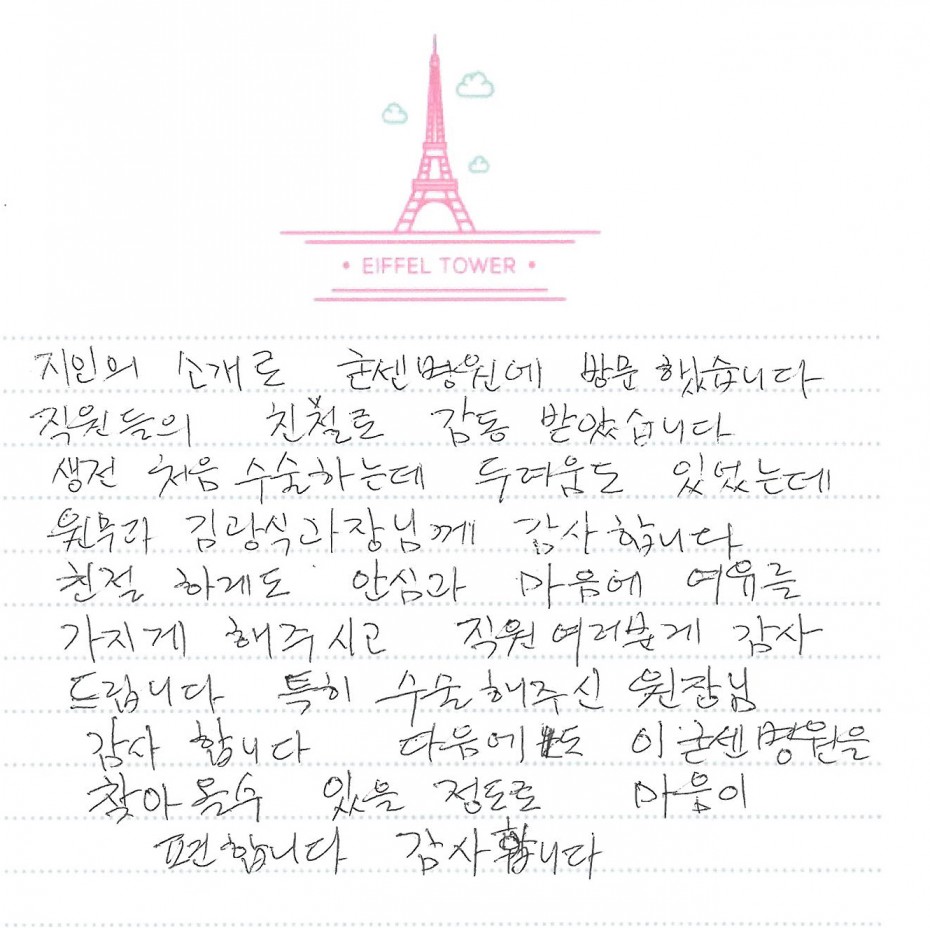 • EIFFEL TOWER •
지인의 소개로 굳센병원에 방문 했습니다
직원들의 친절로 감동 받았습니다
생전 처음 수술하는데 두려움도 있었는데
원무과 김광식과장님께 감사합니다
친절 하게도 안심과 마음에 여유를
가지게 해주시고 직원여러분게 감사
드립니다 특히 수술해주신 원장님
감사 합니다 다음에도 이 굳센병원을
찾아올수 있을 정도로 마음이
편합니다 감사합니다